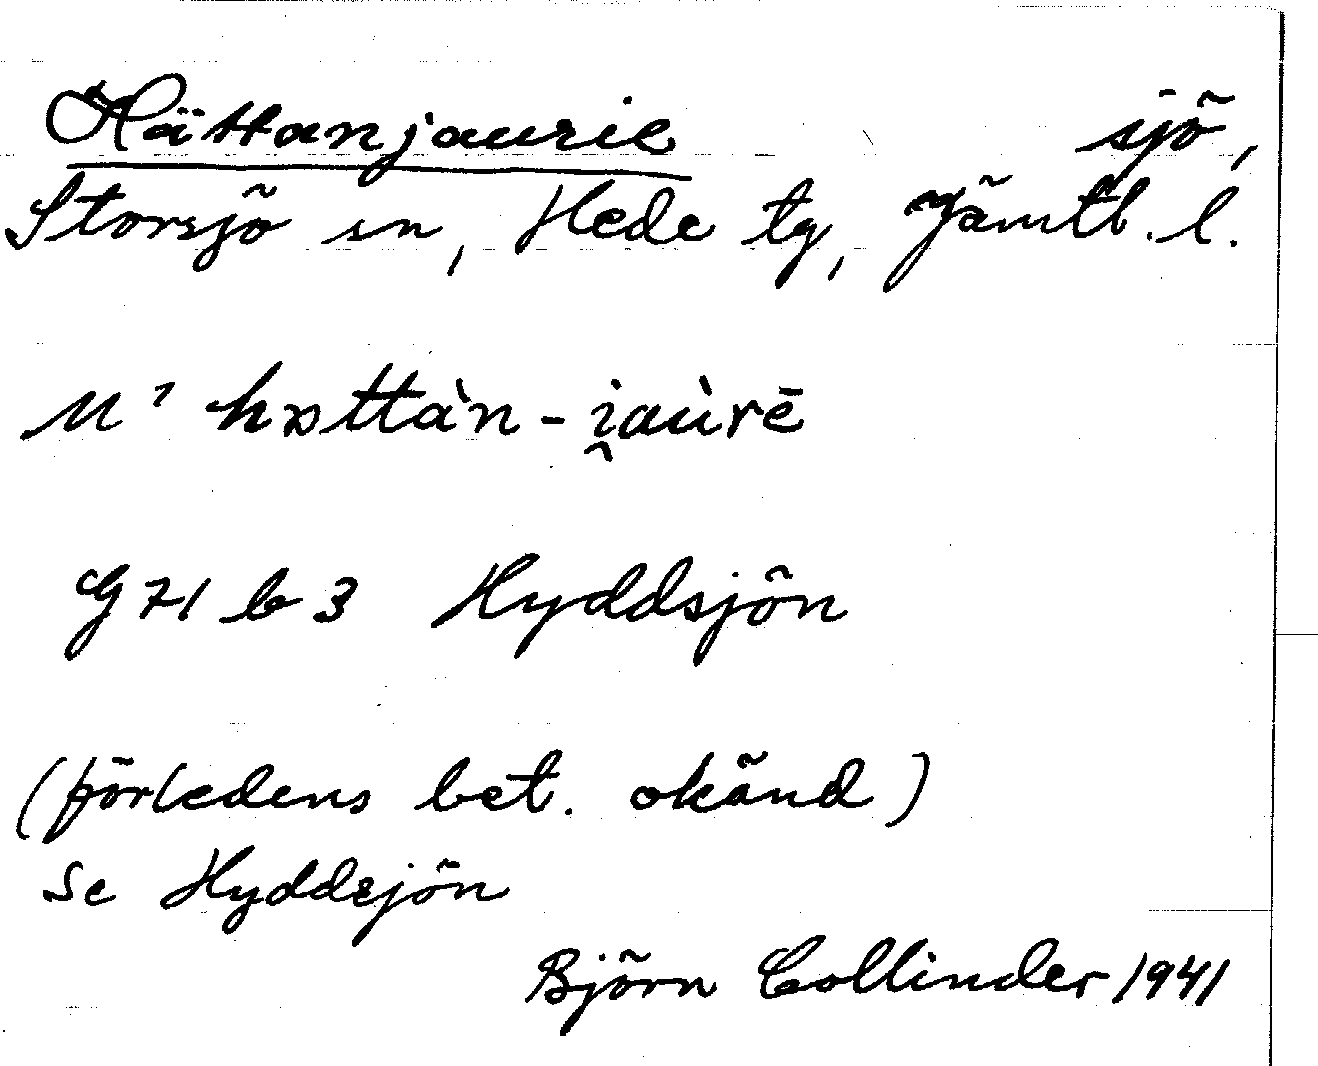 Hättanjaurie sjö,
Storsjö sn, Hede tg, Jämtl. l.
M ' hɒttàn - i̯aùrē
G 71 b 3 Hyddsjön
(förledens bet. okänd)
Se Hyddsjön
Björn Collinder 1941